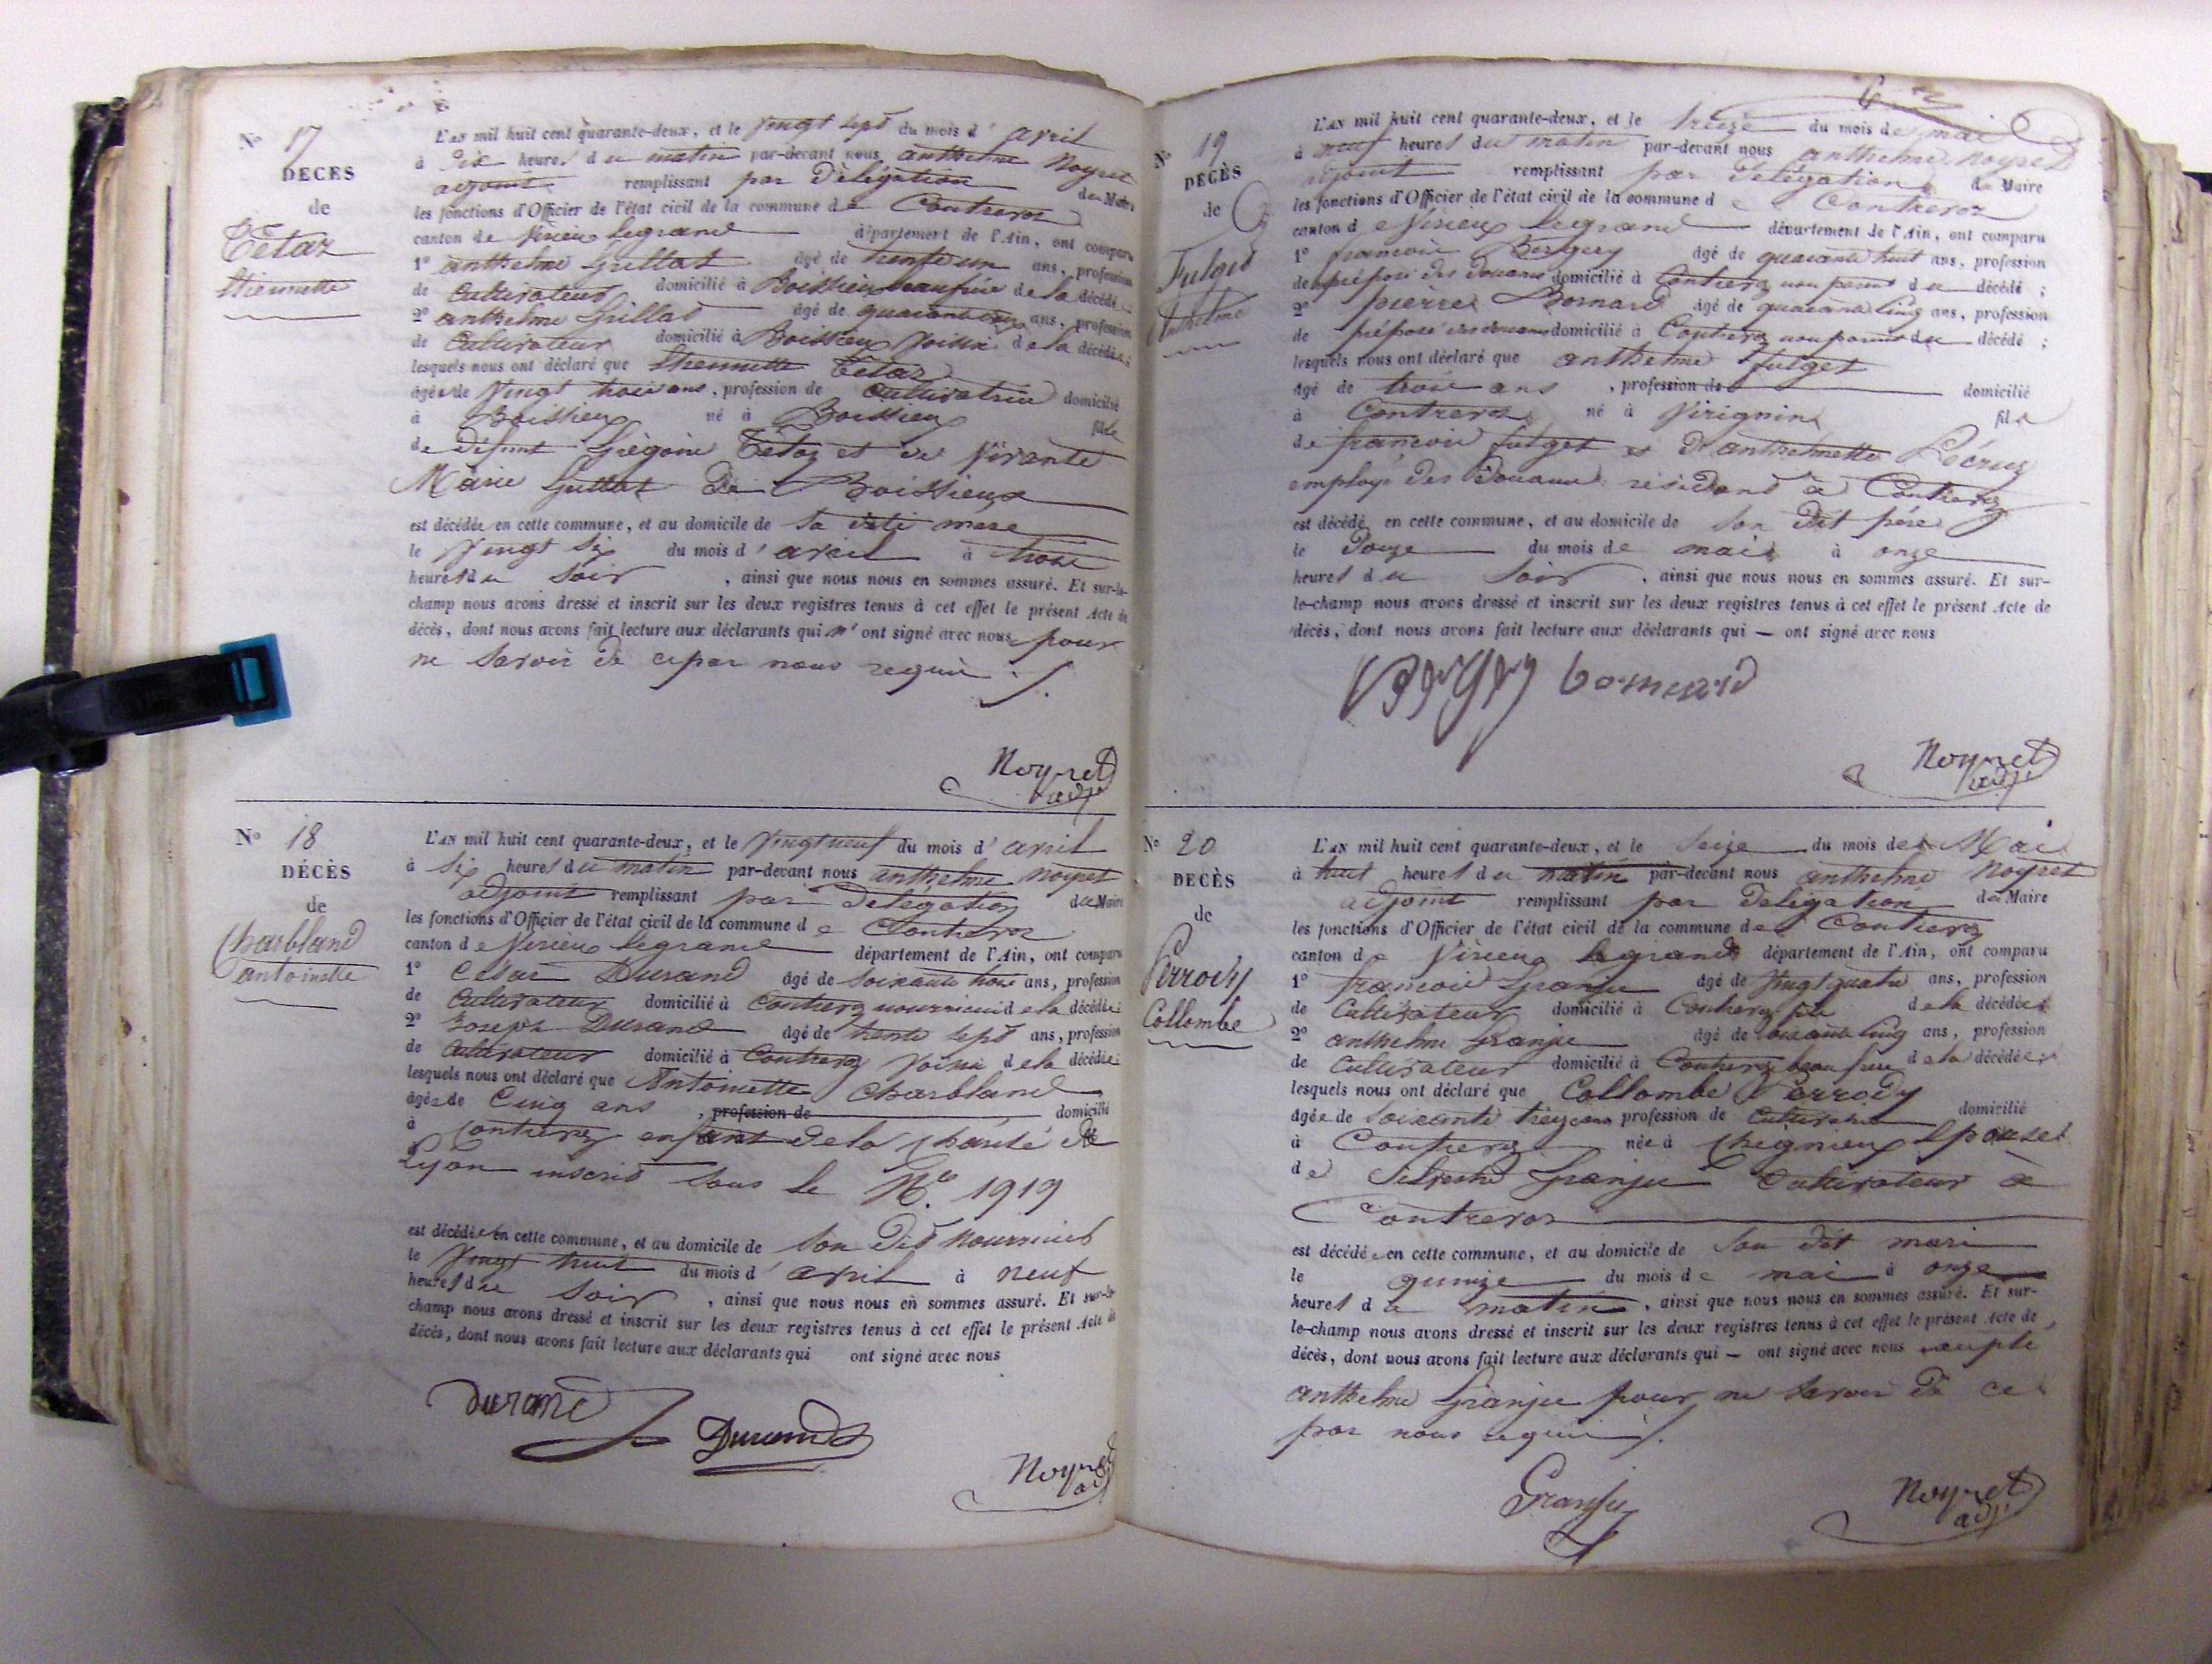 N° 17
DÉCÈS
de
Tétaz
Etiennette
L'AN mil huit cent quarante-deux, et le vingt sept du mois d'avril
à dix heures du matin par-devant nous anthelme Noyret
adjoint remplissant par délégation du Maire
les fonctions d'Officier de l'état civil de la commune de Contrevoz
canton de Virieu legrand département de l'Ain, ont comparu
1° anthelme Guillot âgé de trente un ans, profession
de Cultivateur domicilié à Boissieu beaufrère de la décédée
2° anthelme Grillat âgé de quarante ans, profession
de Cultivateur domicilié à Boissieu voisin de la décédée
lesquels nous ont déclaré que Etiennette Tétaz
âgée de vingt trois ans, profession de Cultivatrice domicilié
à Boissieu né à Boissieu fille
de défunt Grégoire Tétaz et de vivante
Marie Guillot de Boissieux
est décédée en cette commune, et au domicile de sa dite mere
le vingt six du mois d'avril à trois
heures du soir, ainsi que nous nous en sommes assuré. Et sur-le-
champ nous avons dressé et inscrit sur les deux registres tenus à cet effet le présent Acte de
décès, dont nous avons fait lecture aux déclarants qui n'ont signé avec nous pour
ne savoir de ce par nous requis ./.
Noyret
adj
N° 18
DÉCÈS
de
Charbland
antoinette
L'AN mil huit cent quarante-deux, et le vingt neuf du mois d'avril
à six heures du matin par-devant nous anthelme Noyret
adjoint remplissant par délégation du Maire
les fonctions d'Officier de l'état civil de la commune de Contrevoz
canton de Virieu legrand département de l'Ain, ont comparu
1° César Durand âgé de soixante trois ans, profession
de Cultivateur domicilié à Contrevoz nourricier de la décédée
2° Joseph Durand âgé de trente sept ans, profession
de Cultivateur domicilié à Contrevoz voisin de la décédée
lesquels nous ont déclaré que Antoinette Charbland
âgée de Cinq ans, profession de domicilié
à Contrevoz enfant de la charité de
Lyon inscrit sous le N° 1919
est décédée en cette commune, et au domicile de son dit nourricier
le vingt huit du mois d'avril à neuf
heures du soir, ainsi que nous nous en sommes assuré. Et sur-le-
champ nous avons dressé et inscrit sur les deux registres tenus à cet effet le présent Acte de
décès, dont nous avons fait lecture aux déclarants qui ont signé avec nous
Durand
Durand
Noyret
ad
N° 19
DÉCÈS
de
Fulget
Anthelme
L'AN mil huit cent quarante-deux, et le treize du mois de mai
à neuf heures du matin par-devant nous anthelme Noyret
adjoint remplissant par délégation du Maire
les fonctions d'Officier de l'état civil de la commune de Contrevoz
canton de Virieu legrand département de l'Ain, ont comparu
1° francois Bergery âgé de quarante huit ans, profession
de préposé des douane domicilié à Contrevoz non parent du décédé ;
2° pierre Bornard âgé de quarante cinq ans, profession
de préposé des douane domicilié à Contrevoz non parent du décédé ;
lesquels nous ont déclaré que anthelme fulget
âgé de trois ans, profession de domicilié
à Contrevoz né à Virignin fils
de francois fulget et d'anthelmette Lécruz
employé des Douane résidant à Contrevoz
est décédé en cette commune, et au domicile de son dit père
le douze du mois de mai à onze
heures du soir, ainsi que nous nous en sommes assuré. Et sur-
le-champ nous avons dressé et inscrit sur les deux registres tenus à cet effet le présent Acte de
décès, dont nous avons fait lecture aux déclarants qui — ont signé avec nous
bornard
Noyret
adj
N° 20
DÉCÈS
de
Perrody
Collombe
L'AN mil huit cent quarante-deux, et le seize du mois de Mai
à huit heures du matin par-devant nous anthelme Noyret
adjoint remplissant par délégation du Maire
les fonctions d'Officier de l'état civil de la commune de Contrevoz
canton de Virieu legrand département de l'Ain, ont comparu
1° francois Granju âgé de vingt quatre ans, profession
de Cultivateur domicilié à Contrevoz fils de la décédée
2° anthelme Granju âgé de soixante cinq ans, profession
de Cultivateur domicilié à Contrevoz beau frere de la décédée ;
lesquels nous ont déclaré que Collombe Perrody
âgée de soixante treize ans profession de Cultivatrice domicilié
à Contrevoz née à Cheignieu Epouse
de Silvestre Granju Cultivateur à
Contrevoz
est décédée en cette commune, et au domicile de son dit mari
le quinze du mois de mai à onze
heures du matin, ainsi que nous nous en sommes assuré. Et sur-
le-champ nous avons dressé et inscrit sur les deux registres tenus à cet effet le présent Acte de
décès, dont nous avons fait lecture aux déclarants qui — ont signé avec nous excepté
anthelme Granju pour ne savoir de ce
par nous requis ./.
Granju
Noyret
adj